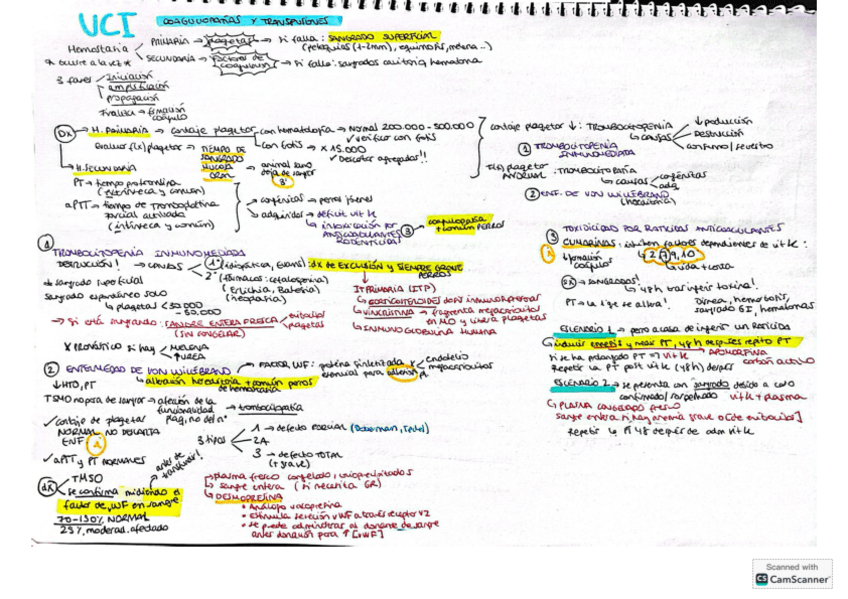 UCI COAGULOPATÍAS Y TRANSFUSIONES
Hemostasia
PRIMARIA → plaquetas → Si falla: SANGRADO SUPERFICIAL
(petequias (1-2mm), equimosis, melena...)
SECUNDARIA → factores de coagulación → Si falla: sangrados cavitarios, hematoma
* ocurre a la vez *
3 fases
iniciación
amplificación
propagación
Finaliza → formación coágulo
Dx → H. PRIMARIA → contaje plaquetas
con hematología → Normal 200.000-500.000
✓ verificar con frotis
con frotis → x 15.000
✓ Descartar agregados!!
Evaluar f(x) plaquetas → TIEMPO DE SANGRADO MUCOSA ORAL → animal sano deja de sangrar 3'
contaje plaquetas ↓: TROMBOCITOPENIA
↳ causas
↓ producción
Destrucción
consumo / secuestro
① TROMBOCITOPENIA INMUNOMEDIADA
F(x) plaquetas ANORMAL: TROMBOCITOPATÍA
↳ causas
congénitas
adq.
② ENF. DE VON WILLEBRAND
(hereditaria)
H. SECUNDARIA
PT → tiempo protrombina
(extrínseca y común)
aPTT → tiempo de tromboplastina parcial activada
(intrínseca y común)
→ congénitas → perros jóvenes
→ adquiridas → déficit vit K
↳ intoxicación por ANTICOAGULANTES RODENTICIDAS ③ → coagulopatía + común PERROS
①
TROMBOCITOPENIA INMUNOMEDIADA
DESTRUCCIÓN! → CAUSAS
1º (idiopática, Evans): dx de EXCLUSIÓN y SIEMPRE GRAVE PERROS
2º (fármacos: cefalosporinas)
(Erlichia, Babesia)
(neoplasia)
do sangrado superficial
sangrado espontáneo solo
↳ plaquetas < 30.000 - 50.000
→ Si está sangrando: SANGRE ENTERA FRESCA (SIN CONGELAR)
eritrocitos
plaquetas
X PRONÓSTICO si hay
MELENA
↑ UREA
TT PRIMARIA (ITP)
↳ CORTICOSTEROIDES dosis inmunosupresoras
↳ VINCRISTINA → fragmenta megacariocitos en MO y libera plaquetas
↳ INMUNOGLOBULINA HUMANA
② ENFERMEDAD DE VON WILLEBRAND → FACTOR WF: proteína sintetizada x
endotelio
megacariocitos
esencial para adhesión pl.
↳ alteración hereditaria + común perros de hemostasia
↓ HTO, PT
TSMO no para de sangrar → afección de la funcionalidad plaq, no del nº → trombocitopatía
✓ contaje de plaquetas NORMAL NO DESCARTA ENF
✓ aPTT y PT NORMALES
3 tipos
1 → defecto PARCIAL (Doberman, Teckel)
2A
3 → defecto TOTAL (+ grave)
dx
TMSO
se confirma midiendo el factor de vWF en sangre
antes de transfundir!
70-150% NORMAL
25% moderad. afectado
→ plasma fresco congelado, crioprecipitados
→ sangre entera (si necesita GR)
→ DESMOPRESINA
• Análogo vasopresina
• Estimula secreción vWF a través receptor V2
• se puede administrar al donante de sangre antes donación para ↑ [vWF]
③ TOXICIDAD POR RATICIDAS ANTICOAGULANTES
CUMARINAS: inhiben factores dependientes de vit K:
↳ 2, 7, 9, 10
↳ vida + corta
↓ formación coágulos
Sx → SANGRADOS!
↳ 48h tras inferir toxina!
PT → la 1º q se altera!
Disnea, hemotórax, sangrado GI, hematomas
ESCENARIO 1 → pero acaba de ingerir un RATICIDA
↳ inducir emesis y medir PT, 48h después repito PT
APOMORFINA
carbón activo
Si se ha prolongado PT → vit K
Repetir la PT post vit K (48h) después
ESCENARIO 2 → se presenta con sangrado debido a caso confirmado/sospechado
vit K + plasma
↳ PLASMA CONGELADO FRESCO
sangre entera si hay anemia grave o [de eritrocitos]
Repetir la PT 48 después de adm vit K
Scanned with
CS CamScanner